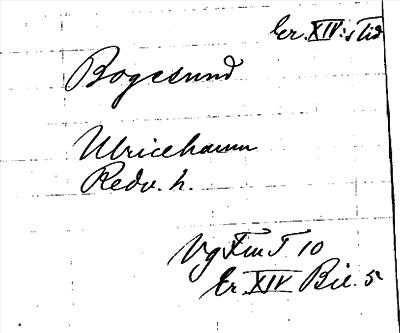 Er. XIV:s Tid
Bogesund
Ulricehamn
Redv. h.
Vg Fm T 10
Er. XIV Bil. 5